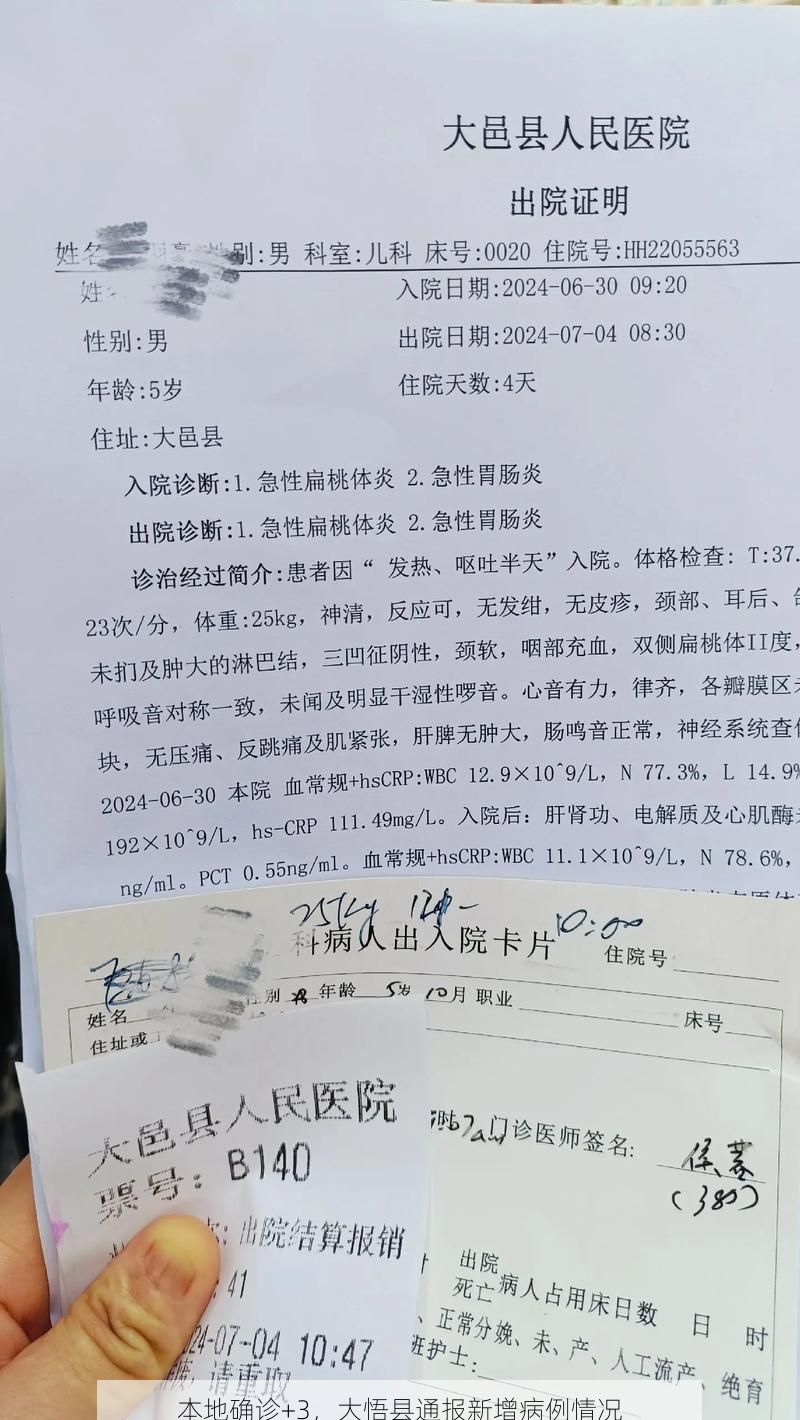 大邑县人民医院
出院证明
姓名 性别:男 科室:儿科 床号:0020 住院号:HH22055563
姓 入院日期:2024-06-30 09:20
性别:男 出院日期:2024-07-04 08:30
年龄:5岁 住院天数:4天
住址:大邑县
入院诊断:1.急性扁桃体炎 2.急性胃肠炎
出院诊断:1.急性扁桃体炎 2.急性胃肠炎
诊治经过简介:患者因“ 发热、呕吐半天”入院。体格检查: T:37.
23次/分, 体重:25kg, 神清, 反应可, 无发绀, 无皮疹, 颈部、耳后、
未扪及肿大的淋巴结, 三凹征阴性, 颈软, 咽部充血, 双侧扁桃体II度,
呼吸音对称一致, 未闻及明显干湿性啰音。心音有力, 律齐, 各瓣膜区
块, 无压痛、反跳痛及肌紧张, 肝脾无肿大, 肠鸣音正常, 神经系统查
2024-06-30 本院 血常规+hsCRP:WBC 12.9×10^9/L, N 77.3%, L 14.9%
192×10^9/L, hs-CRP 111.49mg/L。入院后: 肝肾功、电解质及心肌酶
ng/ml。PCT 0.55ng/ml。血常规+hsCRP:WBC 11.1×10^9/L, N 78.6%,
25kg 10:00
科病人出入院卡片 住院号
姓名 性别 男 年龄 5岁10月 职业 床号
住址或
门诊医师签名:
(380)
大邑县人民医院
票号: B140
出院结算报销
: 41
24-07-04 10:47
请重取
出院
死亡 病人占用床日数 日 时
、正常分娩、未、产、人工流产、绝育
班护士:
本地确诊+3，大悟县通报新增病例情况